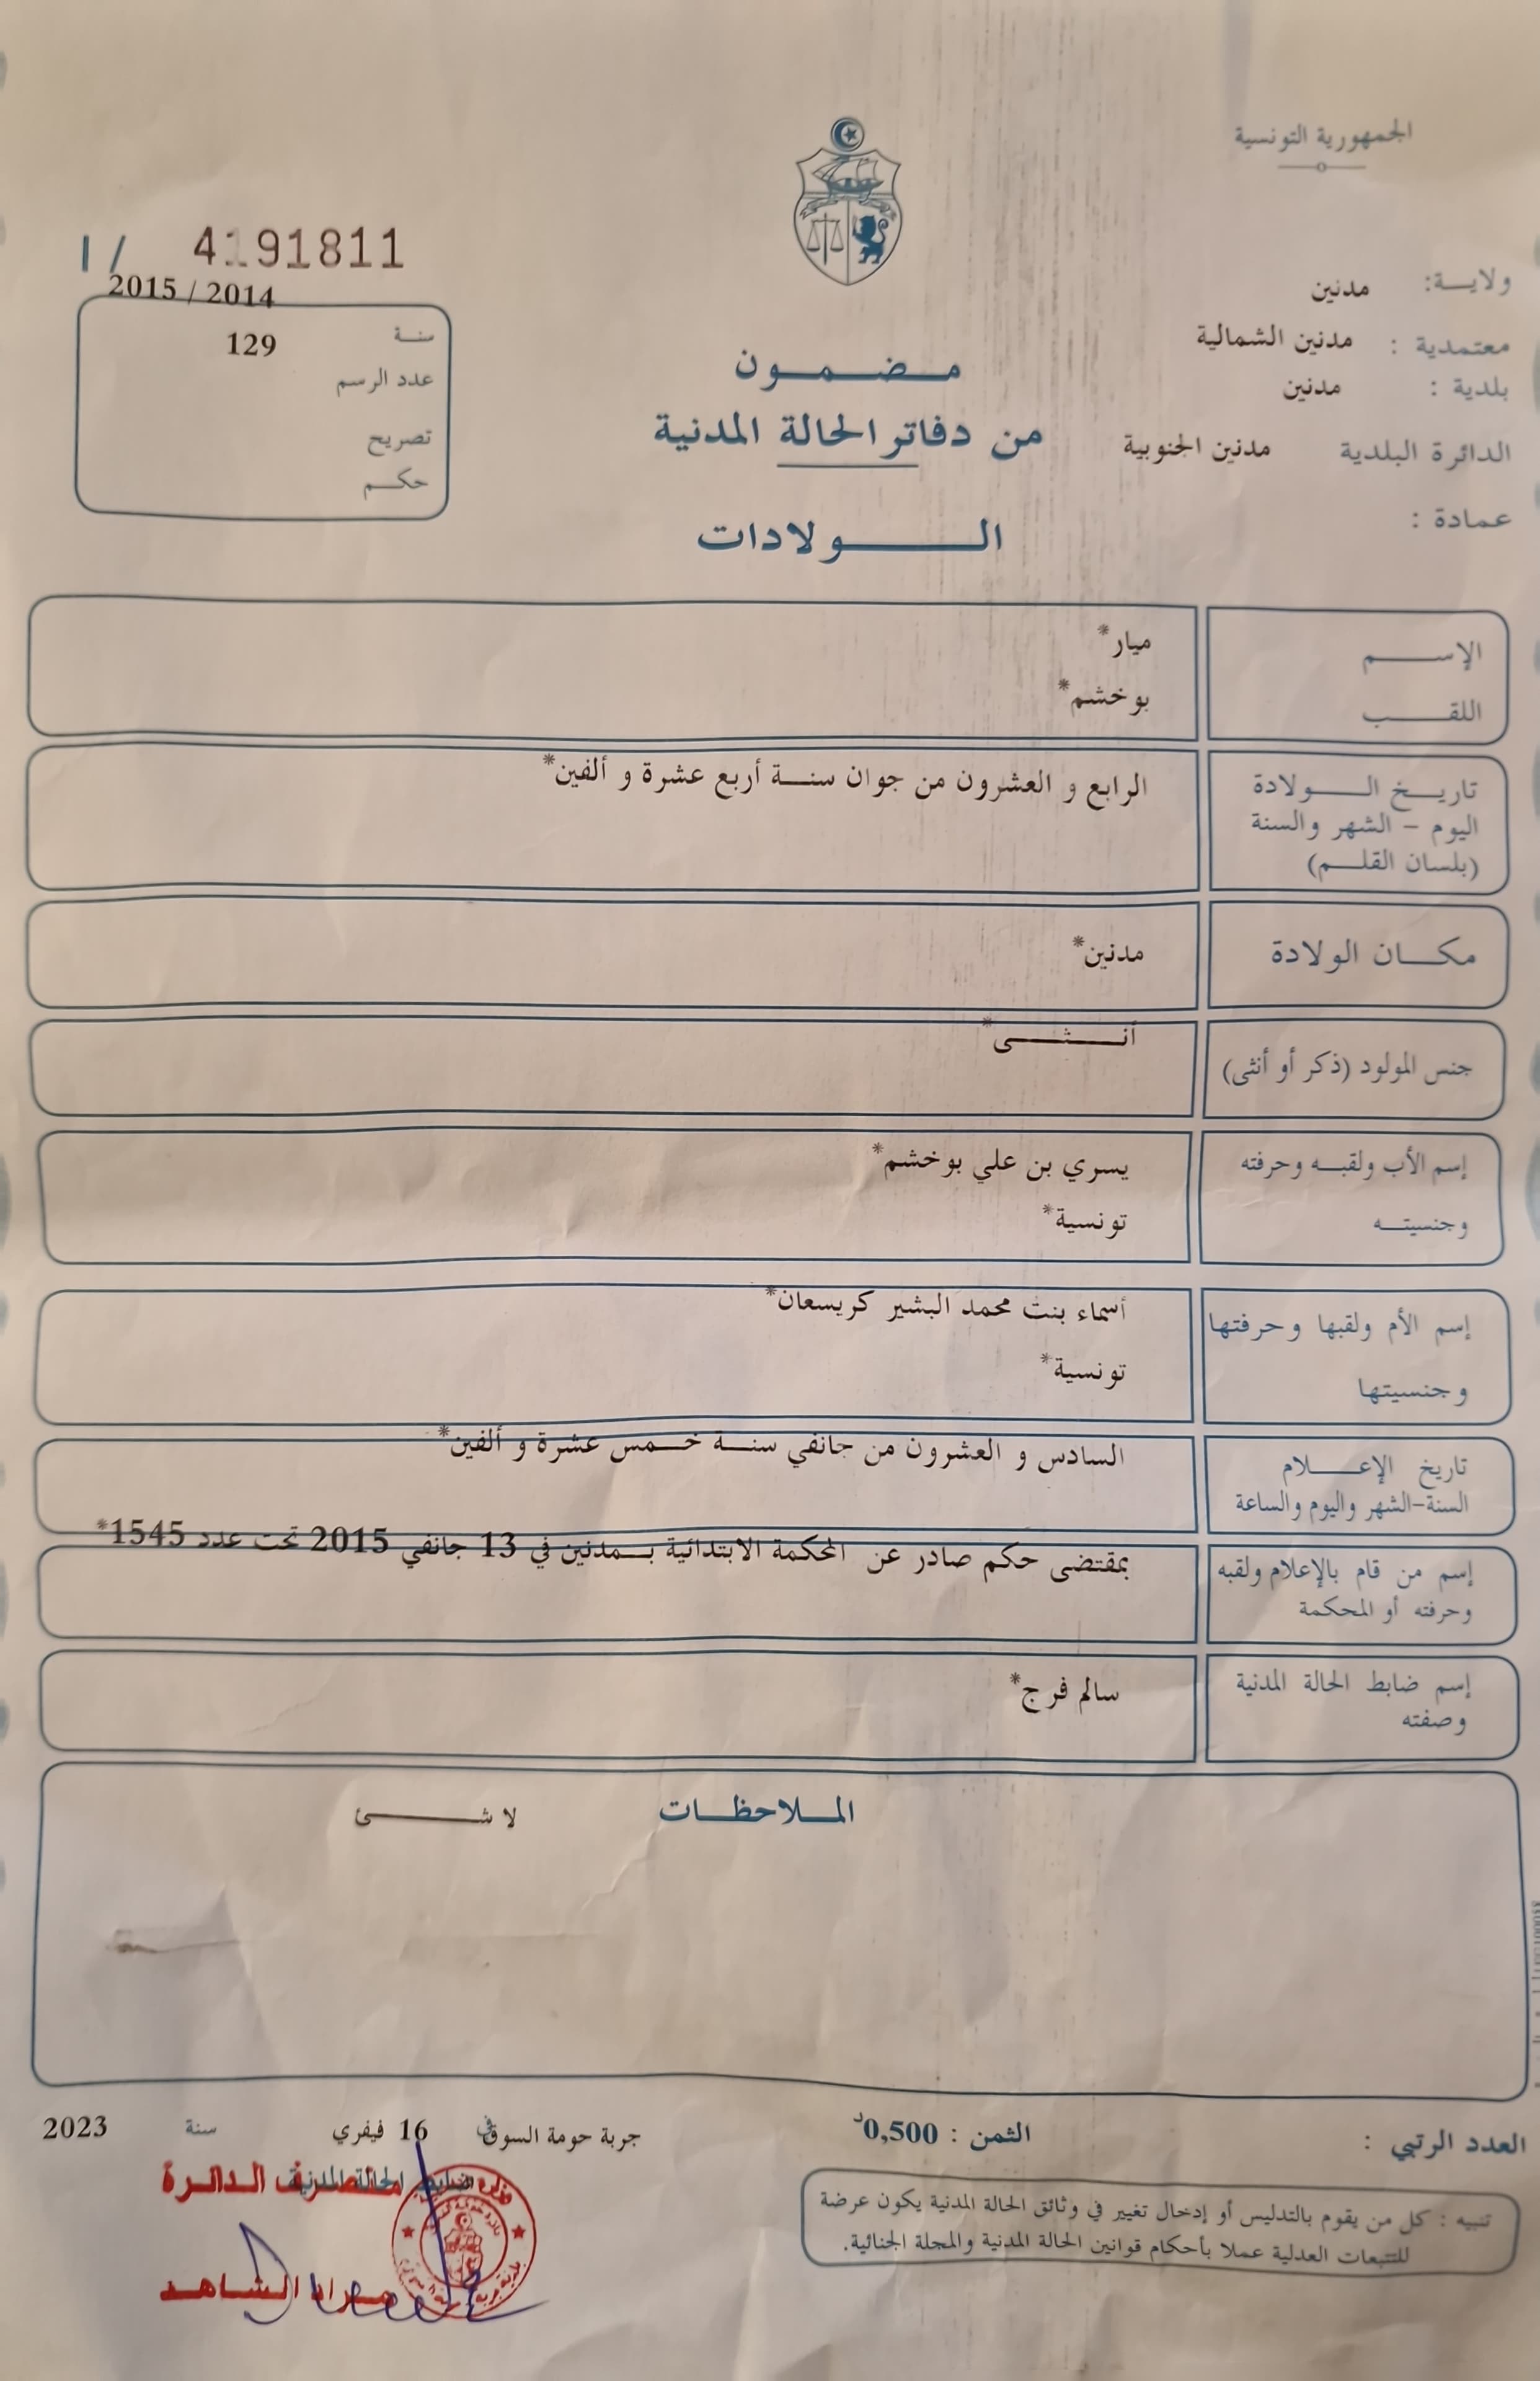 الجمهورية التونسية
ولايـــة: مدنين
معتمدية : مدنين الشمالية
بلدية : مدنين
الدائرة البلدية مدنين الجنوبية
عمادة :
مـــضـــمـــون
من دفاتر الحالة المدنية
الـــــولادات
1/ 4191811
2015 / 2014
سنـة
129
عدد الرسم
تصريح
حكـــم
الإســـــم ميار*
اللقـــــب بوخشم*
تاريــخ الـــولادة الرابع و العشرون من جوان سنــة أربع عشرة و ألفين*
اليوم – الشهر والسنة
(بلسان القلــم)
مكـــان الولادة مدنين*
جنس المولود (ذكر أو أنثى) أنـــثـــى*
إسم الأب ولقبـــه وحرفته يسري بن علي بوخشم*
وجنسيتـــه تونسية*
إسم الأم ولقبها وحرفتها أسماء بنت محمد البشير كريسعان*
وجنسيتها تونسية*
تاريخ الإعـــــلام السادس و العشرون من جانفي سنــة خــمس عشرة و ألفين*
السنة-الشهر واليوم والساعة
إسم من قام بالإعلام ولقبه بمقتضى حكم صادر عن المحكمة الابتدائية بــمدنين في 13 جانفي 2015 تحت عدد 1545*
وحرفته أو المحكمة
إسم ضابط الحالة المدنية سالم فرج*
وصفته
المــلاحظــات لا شـــــئ
العدد الرتبي :
الثمن : 0,500د
جربة حومة السوق في 16 فيفري سنة 2023
ضابط الحالة المدنية
متصرف الدائرة
مراد الشاهد
تنبيه : كل من يقوم بالتدليس أو إدخال تغيير في وثائق الحالة المدنية يكون عرضة
للتتبعات العدلية عملا بأحكام قوانين الحالة المدنية والمجلة الجنائية.